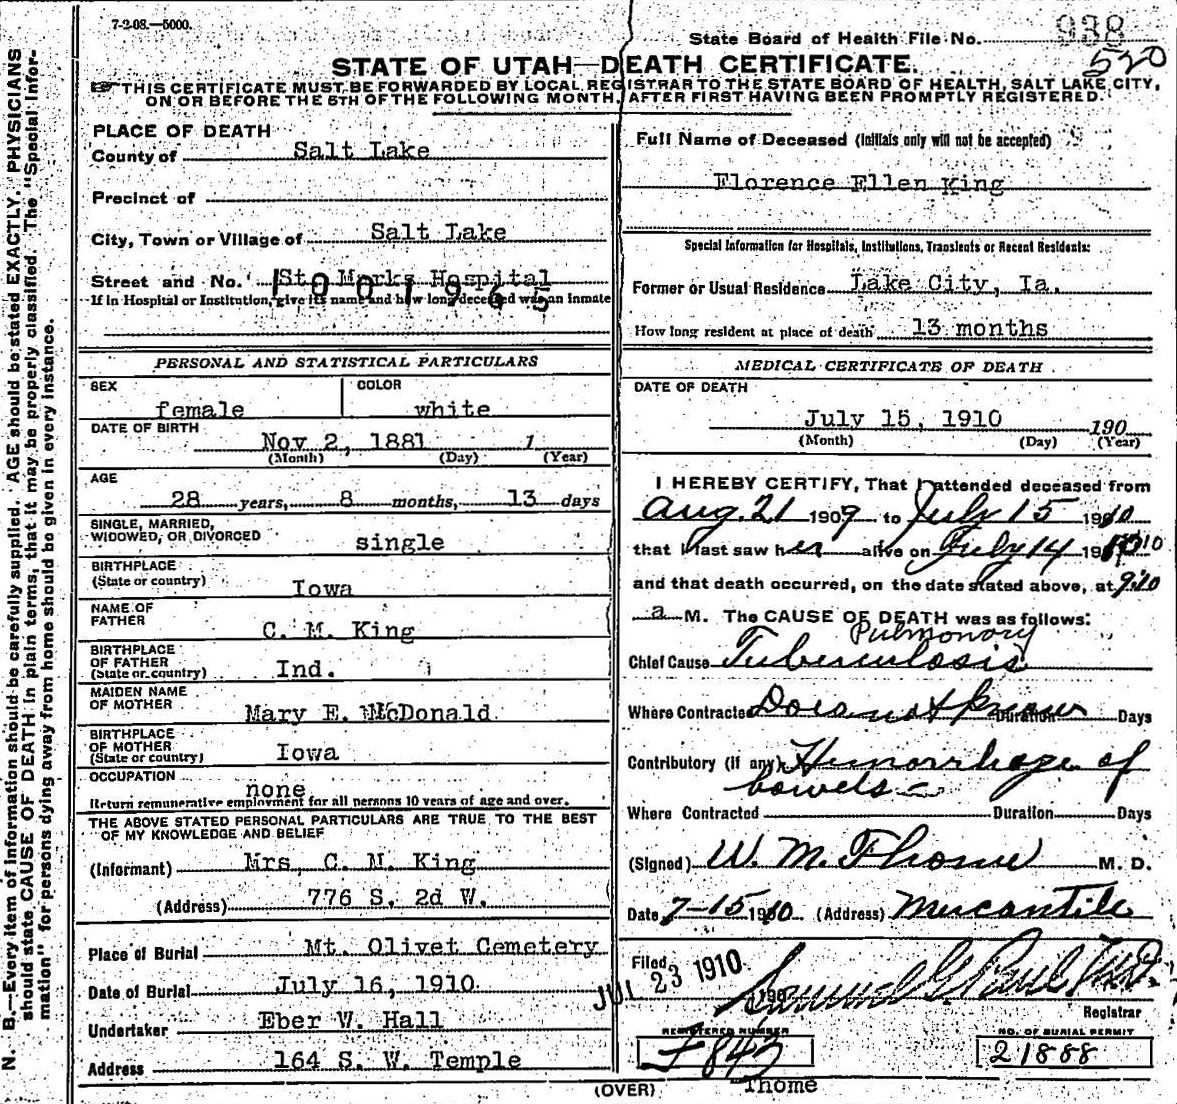 7-2-08.—5000.
State Board of Health File No. 938
520
STATE OF UTAH—DEATH CERTIFICATE.
☞ THIS CERTIFICATE MUST BE FORWARDED BY LOCAL REGISTRAR TO THE STATE BOARD OF HEALTH, SALT LAKE CITY,
ON OR BEFORE THE 5TH OF THE FOLLOWING MONTH, AFTER FIRST HAVING BEEN PROMPTLY REGISTERED.
N. B.—Every item of information should be carefully supplied. AGE should be stated EXACTLY. PHYSICIANS
should state CAUSE OF DEATH in plain terms, that it may be properly classified. The "Special Infor-
mation" for persons dying away from home should be given in every instance.
PLACE OF DEATH
County of Salt Lake
Precinct of
City, Town or Village of Salt Lake
Street and No. St. Marks Hospital
1001965
If in Hospital or Institution, give its name and how long deceased was an inmate
PERSONAL AND STATISTICAL PARTICULARS
SEX female COLOR white
DATE OF BIRTH
Nov 2, 1881 1
(Month) (Day) (Year)
AGE
28 years, 8 months, 13 days
SINGLE, MARRIED,
WIDOWED, OR DIVORCED single
BIRTHPLACE
(State or country) Iowa
NAME OF
FATHER C. M. King
BIRTHPLACE
OF FATHER
(State or country) Ind.
MAIDEN NAME
OF MOTHER Mary E. McDonald
BIRTHPLACE
OF MOTHER
(State or country) Iowa
OCCUPATION
none
Return remunerative employment for all persons 10 years of age and over.
THE ABOVE STATED PERSONAL PARTICULARS ARE TRUE TO THE BEST
OF MY KNOWLEDGE AND BELIEF
(Informant) Mrs, C. M. King
(Address) 776 S. 2d W.
Place of Burial Mt. Olivet Cemetery
Date of Burial July 16, 1910
Undertaker Eber W. Hall
Address 164 S. W. Temple
Full Name of Deceased (Initials only will not be accepted)
Florence Ellen King
Special Information for Hospitals, Institutions, Transients or Recent Residents:
Former or Usual Residence Lake City, Ia.
How long resident at place of death 13 months
MEDICAL CERTIFICATE OF DEATH
DATE OF DEATH
July 15, 1910 190
(Month) (Day) (Year)
I HEREBY CERTIFY, That I attended deceased from
Aug. 21 1909 to July 15 1910
that I last saw her alive on July 14 1910
and that death occurred, on the date stated above, at 9:10
a M. The CAUSE OF DEATH was as follows:
Pulmonary
Chief Cause Tuberculosis
Where Contracted Does not know Duration Days
Contributory (if any) Hemorrhage of
bowels
Where Contracted Duration Days
(Signed) W. M. Thome M. D.
Date 7-15 1910 (Address) Mercantile
Filed JUL 23 1910 190
Samuel G. Paul M.D.
Registrar
REGISTERED NUMBER
F 843
NO. OF BURIAL PERMIT
21888
Thome
(OVER)